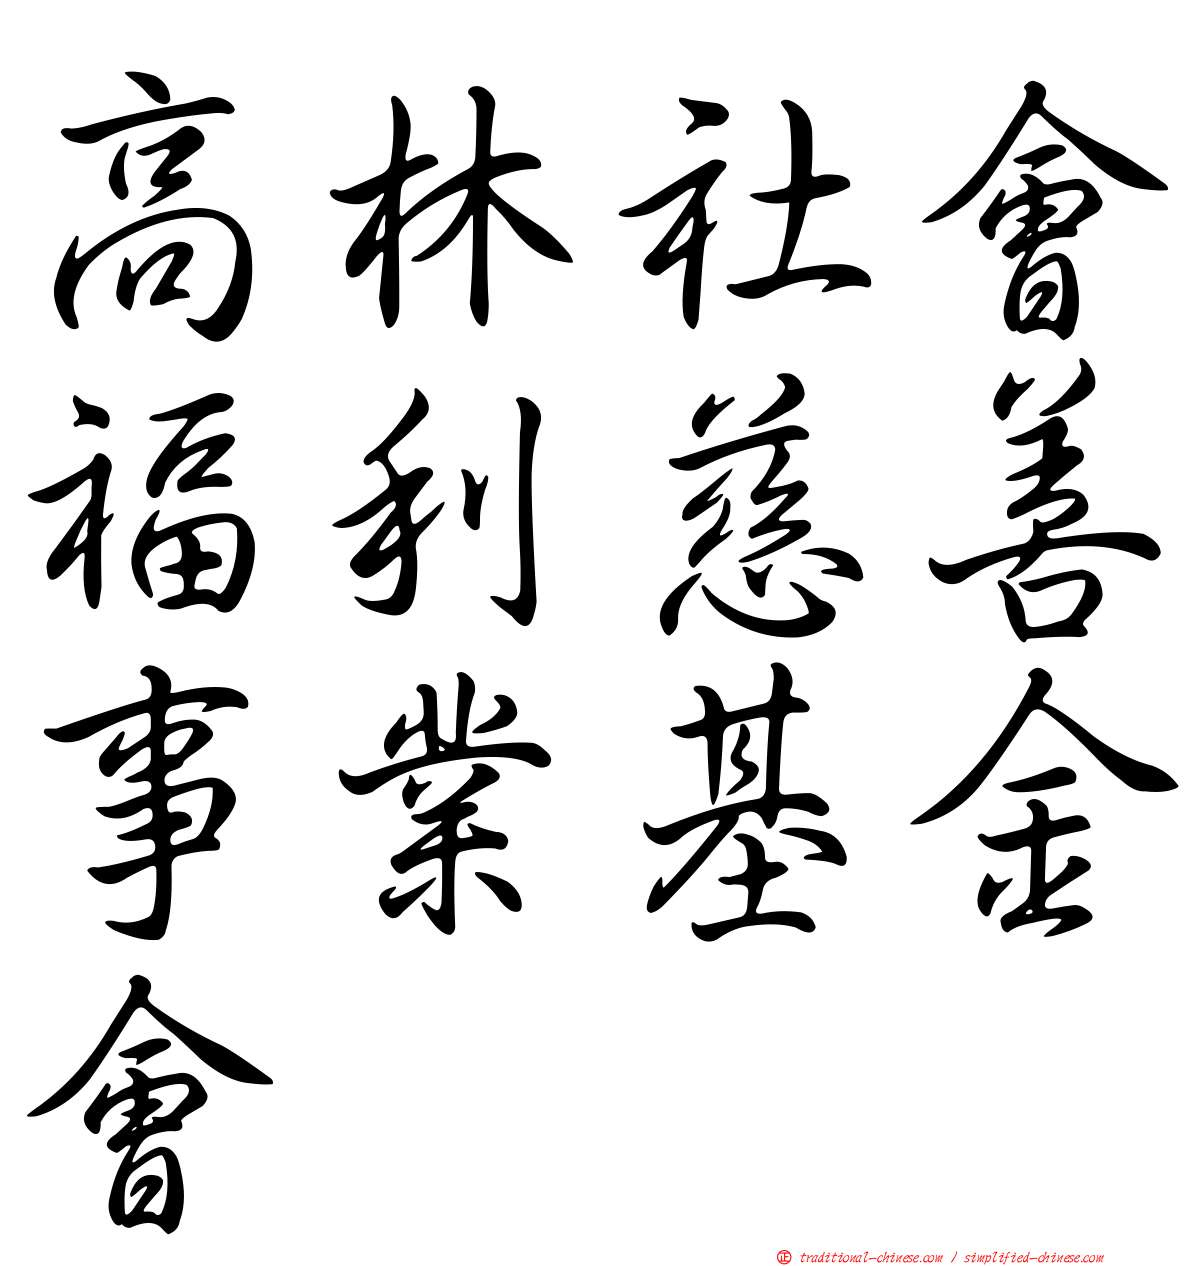 高林社會
福利慈善
事業基金
會
正 traditional-chinese.com / simplified-chinese.com